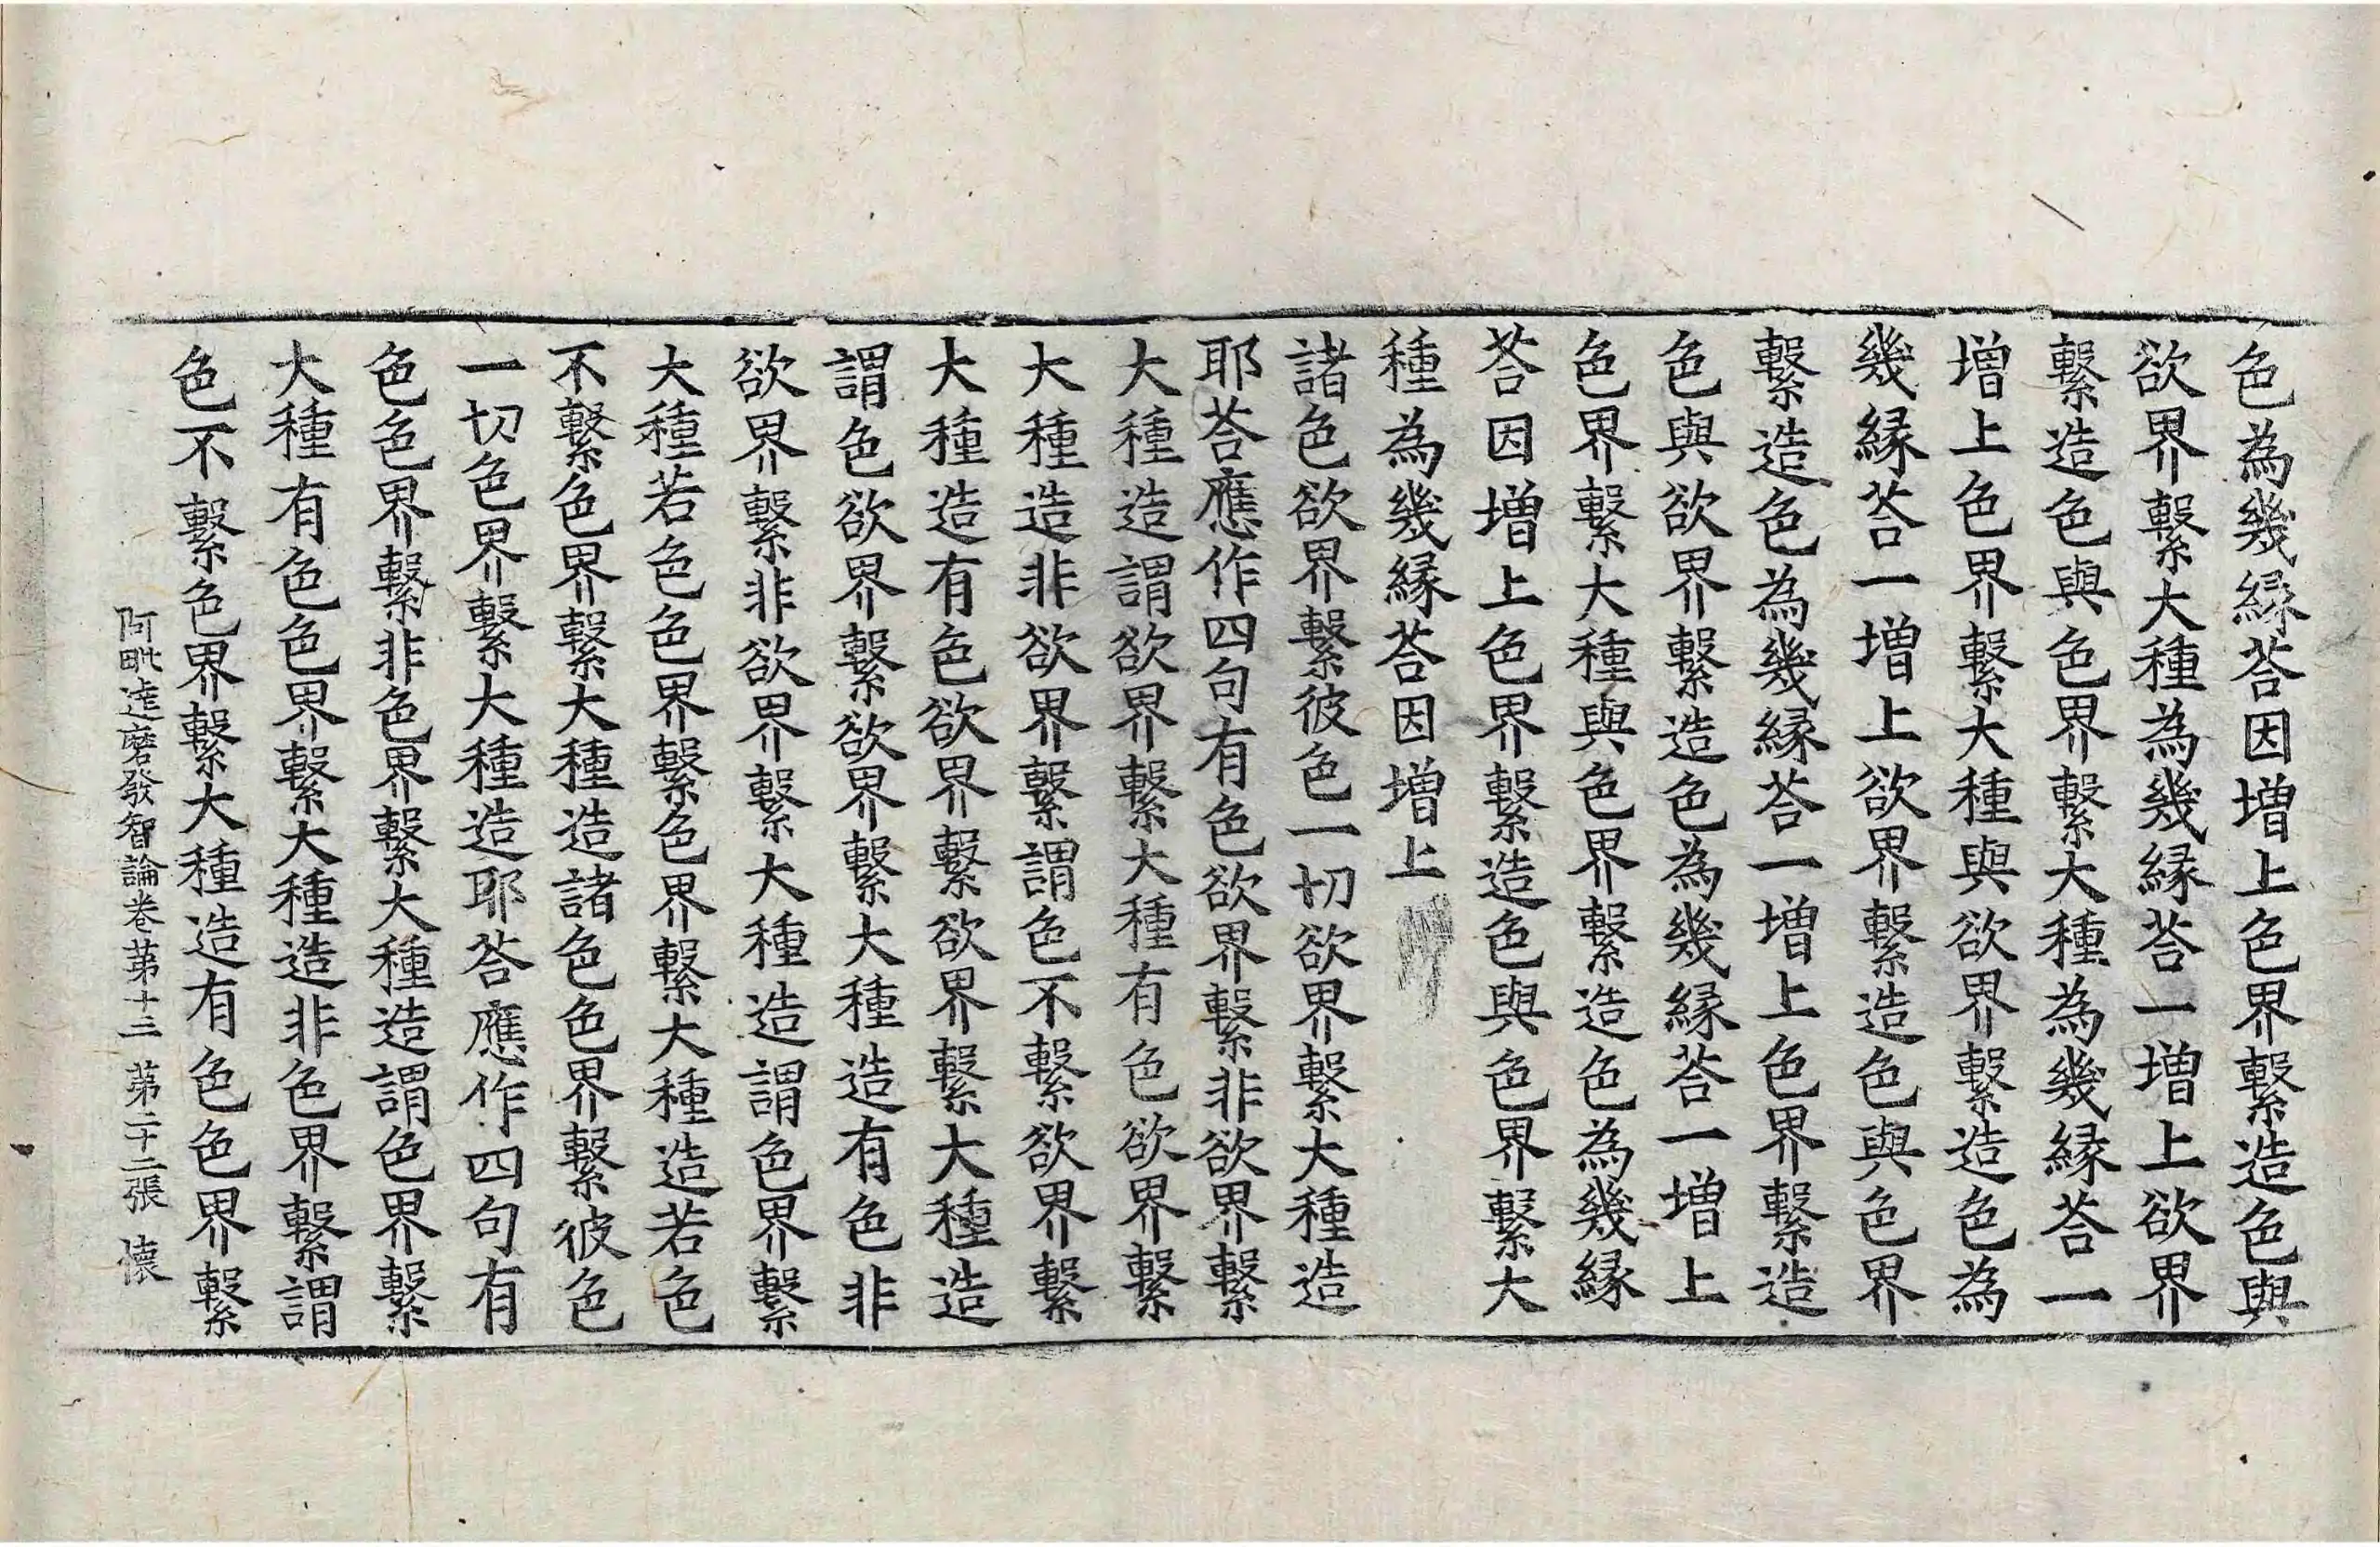 色為幾縁荅因增上色界繫造色與
欲界繫大種為幾縁荅一增上欲界
繫造色與色界繫大種為幾縁荅一
增上色界繫大種與欲界繫造色為
幾縁荅一增上欲界繫造色與色界
繫造色為幾縁荅一增上色界繫造
色與欲界繫造色為幾縁荅一增上
色界繫大種與色界繫造色為幾縁
荅因增上色界繫造色與色界繫大
種為幾縁荅因增上
諸色欲界繫彼色一切欲界繫大種造
耶荅應作四句有色欲界繫非欲界繫
大種造謂欲界繫大種有色欲界繫
大種造非欲界繫謂色不繫欲界繫
大種造有色欲界繫欲界繫大種造
謂色欲界繫欲界繫大種造有色非
欲界繫非欲界繫大種造謂色界繫
大種若色色界繫色界繫大種造若色
不繫色界繫大種造諸色色界繫彼色
一切色界繫大種造耶荅應作四句有
色色界繫非色界繫大種造謂色界繫
大種有色色界繫大種造非色界繫謂
色不繫色界繫大種造有色色界繫
阿毗達磨發智論卷苐十三 苐二十二張 懐